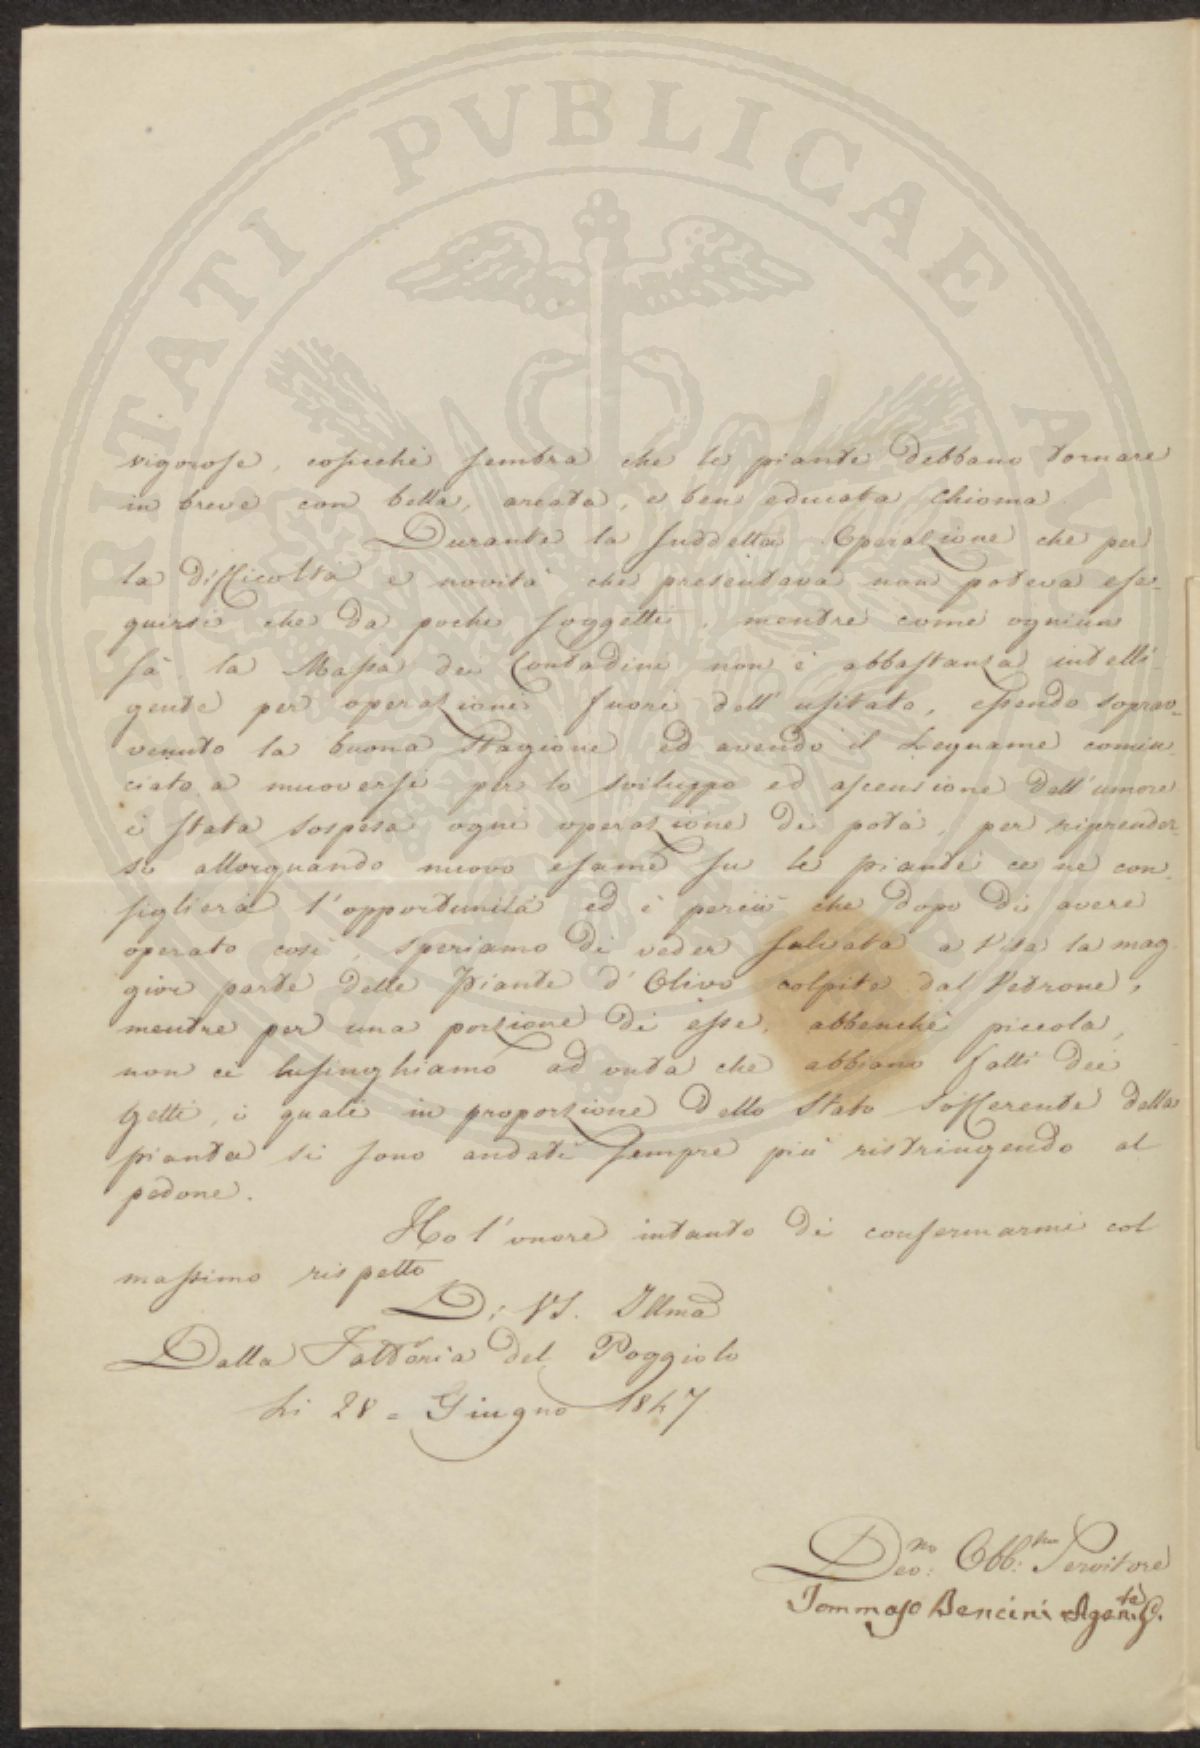 vigorose, cosicchè sembra che le piante debbano tornare
in breve con bella, areata, e ben educata Chioma.
Durante la suddetta Operazione che per
la difficoltà e novità che presentava non poteva ese-
guirsi che da pochi soggetti, mentre come ognun
sà la Massa dei Contadini non è abbastanza intelli-
gente per operazioni fuori dell'usitato, essendo soprav-
venuto la buona Stagione ed avendo il Legname comin-
ciato a muoversi per lo sviluppo ed ascensione dell'umore
è stata sospesa ogni operazione di pota, per riprender-
si allorquando nuovo esame su le piante ce ne con-
siglierà l'opportunità ed è perciò che dopo di avere
operato così, speriamo di veder salvata a Vita la mag-
gior parte delle Piante d'Olivo colpite dal Pedrone,
mentre per una porzione di esse, abbenchè piccola,
non ci lusinghiamo ad onta che abbiano fatti dei
getti, i quali in proporzione dello Stato sofferente della
pianta si sono andati sempre più ristringendo al
pedone.
Ho l'onore intanto di confermarmi col
massimo rispetto
Di VS. Illma
Dalla Fattoria del Poggiolo
li 28 = Giugno 1847
Devmo: Obblmo: Servitore
Tommaso Bencini Agente G.
PVBLICAE